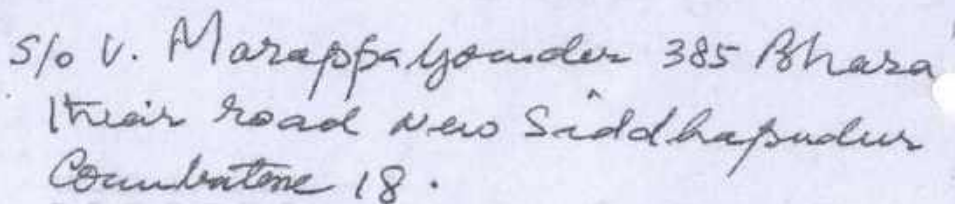 S/o V. Marappa Gounder 385 Bhara
thiar road New Siddhapudur
Coimbatore 18.